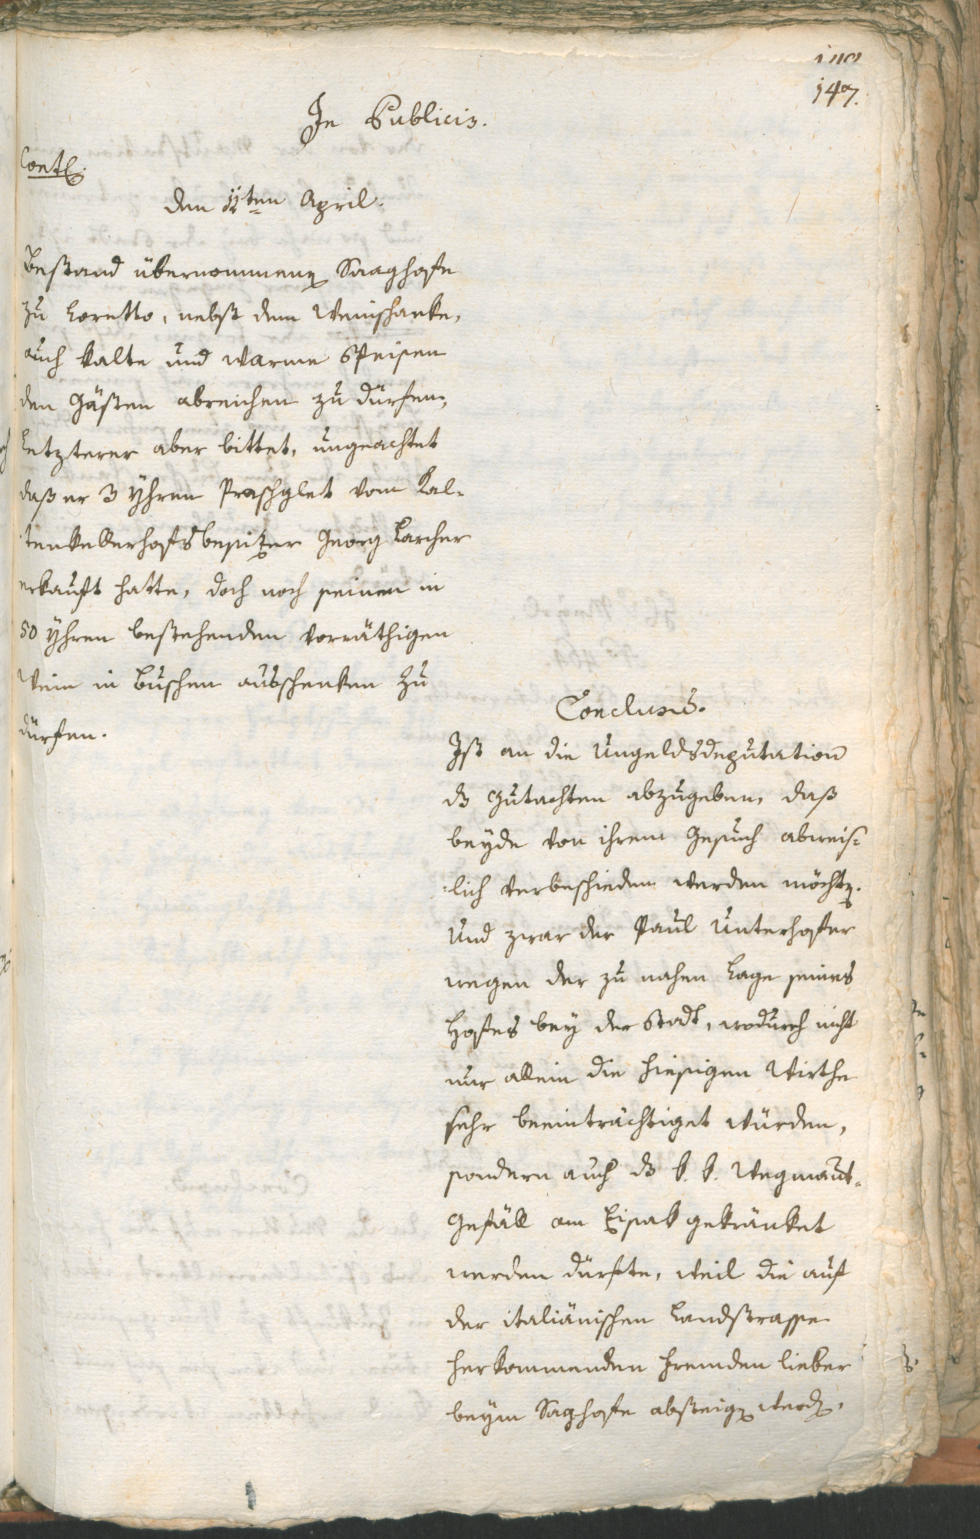 147.
In Publicis.
Contl:
den 11ten April.
Bestand übernommenen Saaghofe
zu Loretto, nebst dem Weinschanke,
auch kalte und warme Speisen
den Gästen abreichen zu dürfen,
Letzterer aber bittet, ungeachtet
daß er 3 Yhren Praschglet vom Kal-
tenkellerhofsbesitzer Georg Larcher
erkauft hatte, doch noch seinen in
50 Yhren bestehenden vorräthigen
Wein in Buschen ausschenken zu
dürfen.
Conclusus.
Ist an die Ungeldsdeputation
ds Gutachten abzugeben, daß
beyde von ihrem Gesuch abweis-
lich verbeschieden werden möchten.
Und zwar der Paul Unterhofer
wegen der zu nahen Lage seines
Hofes bey der Stadt, wodurch nicht
nur allein die hiesigen Wirthe
sehr beeinträchtiget würden,
sondern auch ds k. k. Wegmaut-
Gefäll am Eisak gekränket
werden dürfte, weil die auf
der italiänischen Landstrasse
herkommenden Fremden lieber
beym Saghofe absteigen werden,